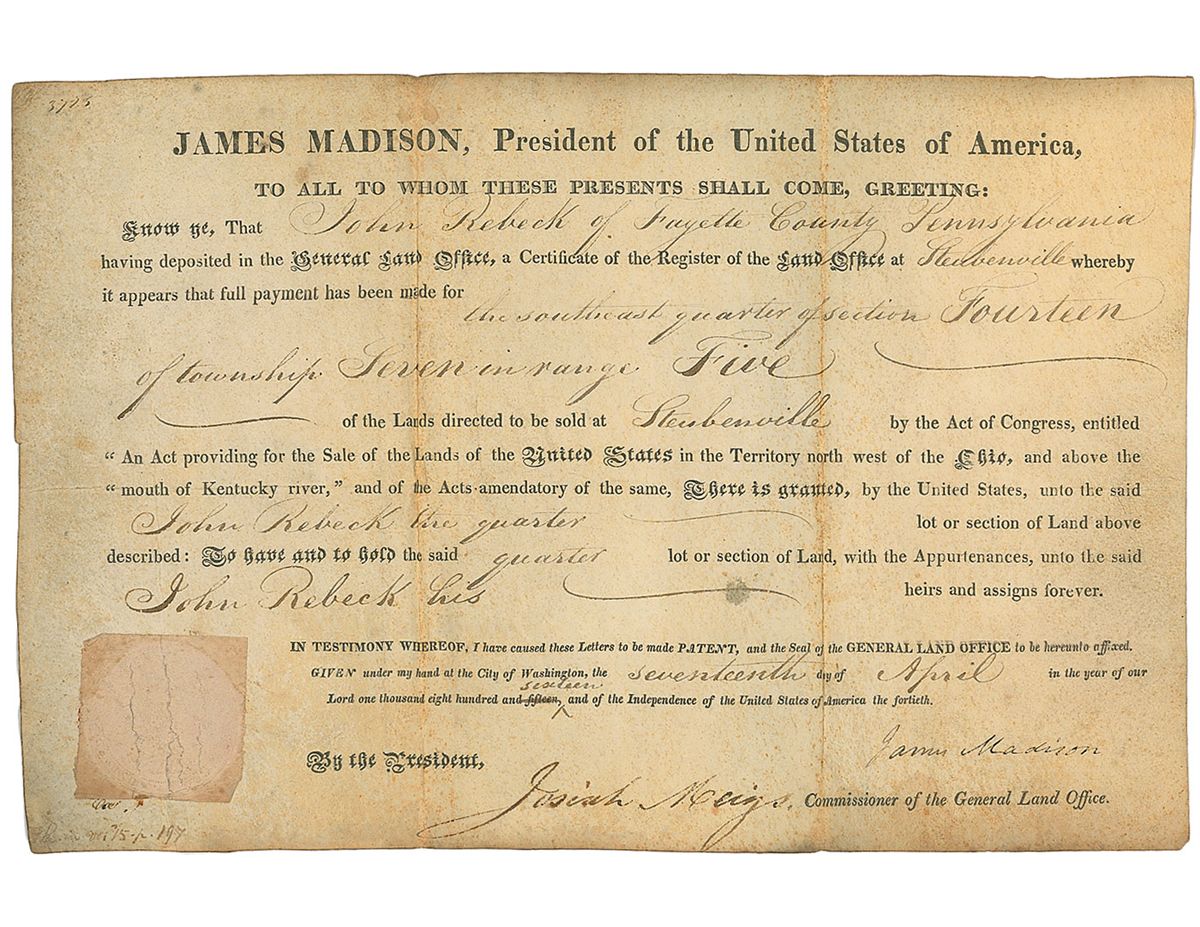 3773
JAMES MADISON, President of the United States of America,
TO ALL TO WHOM THESE PRESENTS SHALL COME, GREETING:
Know ye, That John Rebeck of Fayette County Pennsylvania
having deposited in the General Land Office, a Certificate of the Register of the Land Office at Steubenville whereby
it appears that full payment has been made for
the southeast quarter of section Fourteen
of township Seven in range Five
of the Lands directed to be sold at Steubenville by the Act of Congress, entitled
“An Act providing for the Sale of the Lands of the United States in the Territory north west of the Ohio, and above the
“mouth of Kentucky river,” and of the Acts amendatory of the same, There is granted, by the United States, unto the said
John Rebeck the quarter lot or section of Land above
described: To have and to hold the said quarter lot or section of Land, with the Appurtenances, unto the said
John Rebeck his heirs and assigns forever.
IN TESTIMONY WHEREOF, I have caused these Letters to be made PATENT, and the Seal of the GENERAL LAND OFFICE to be hereunto affixed.
GIVEN under my hand at the City of Washington, the seventeenth day of April in the year of our
sixteen
Lord one thousand eight hundred and fifteen, and of the Independence of the United States of America the fortieth.
James Madison
By the President,
Josiah Meigs, Commissioner of the General Land Office.
vol 15 p. 197